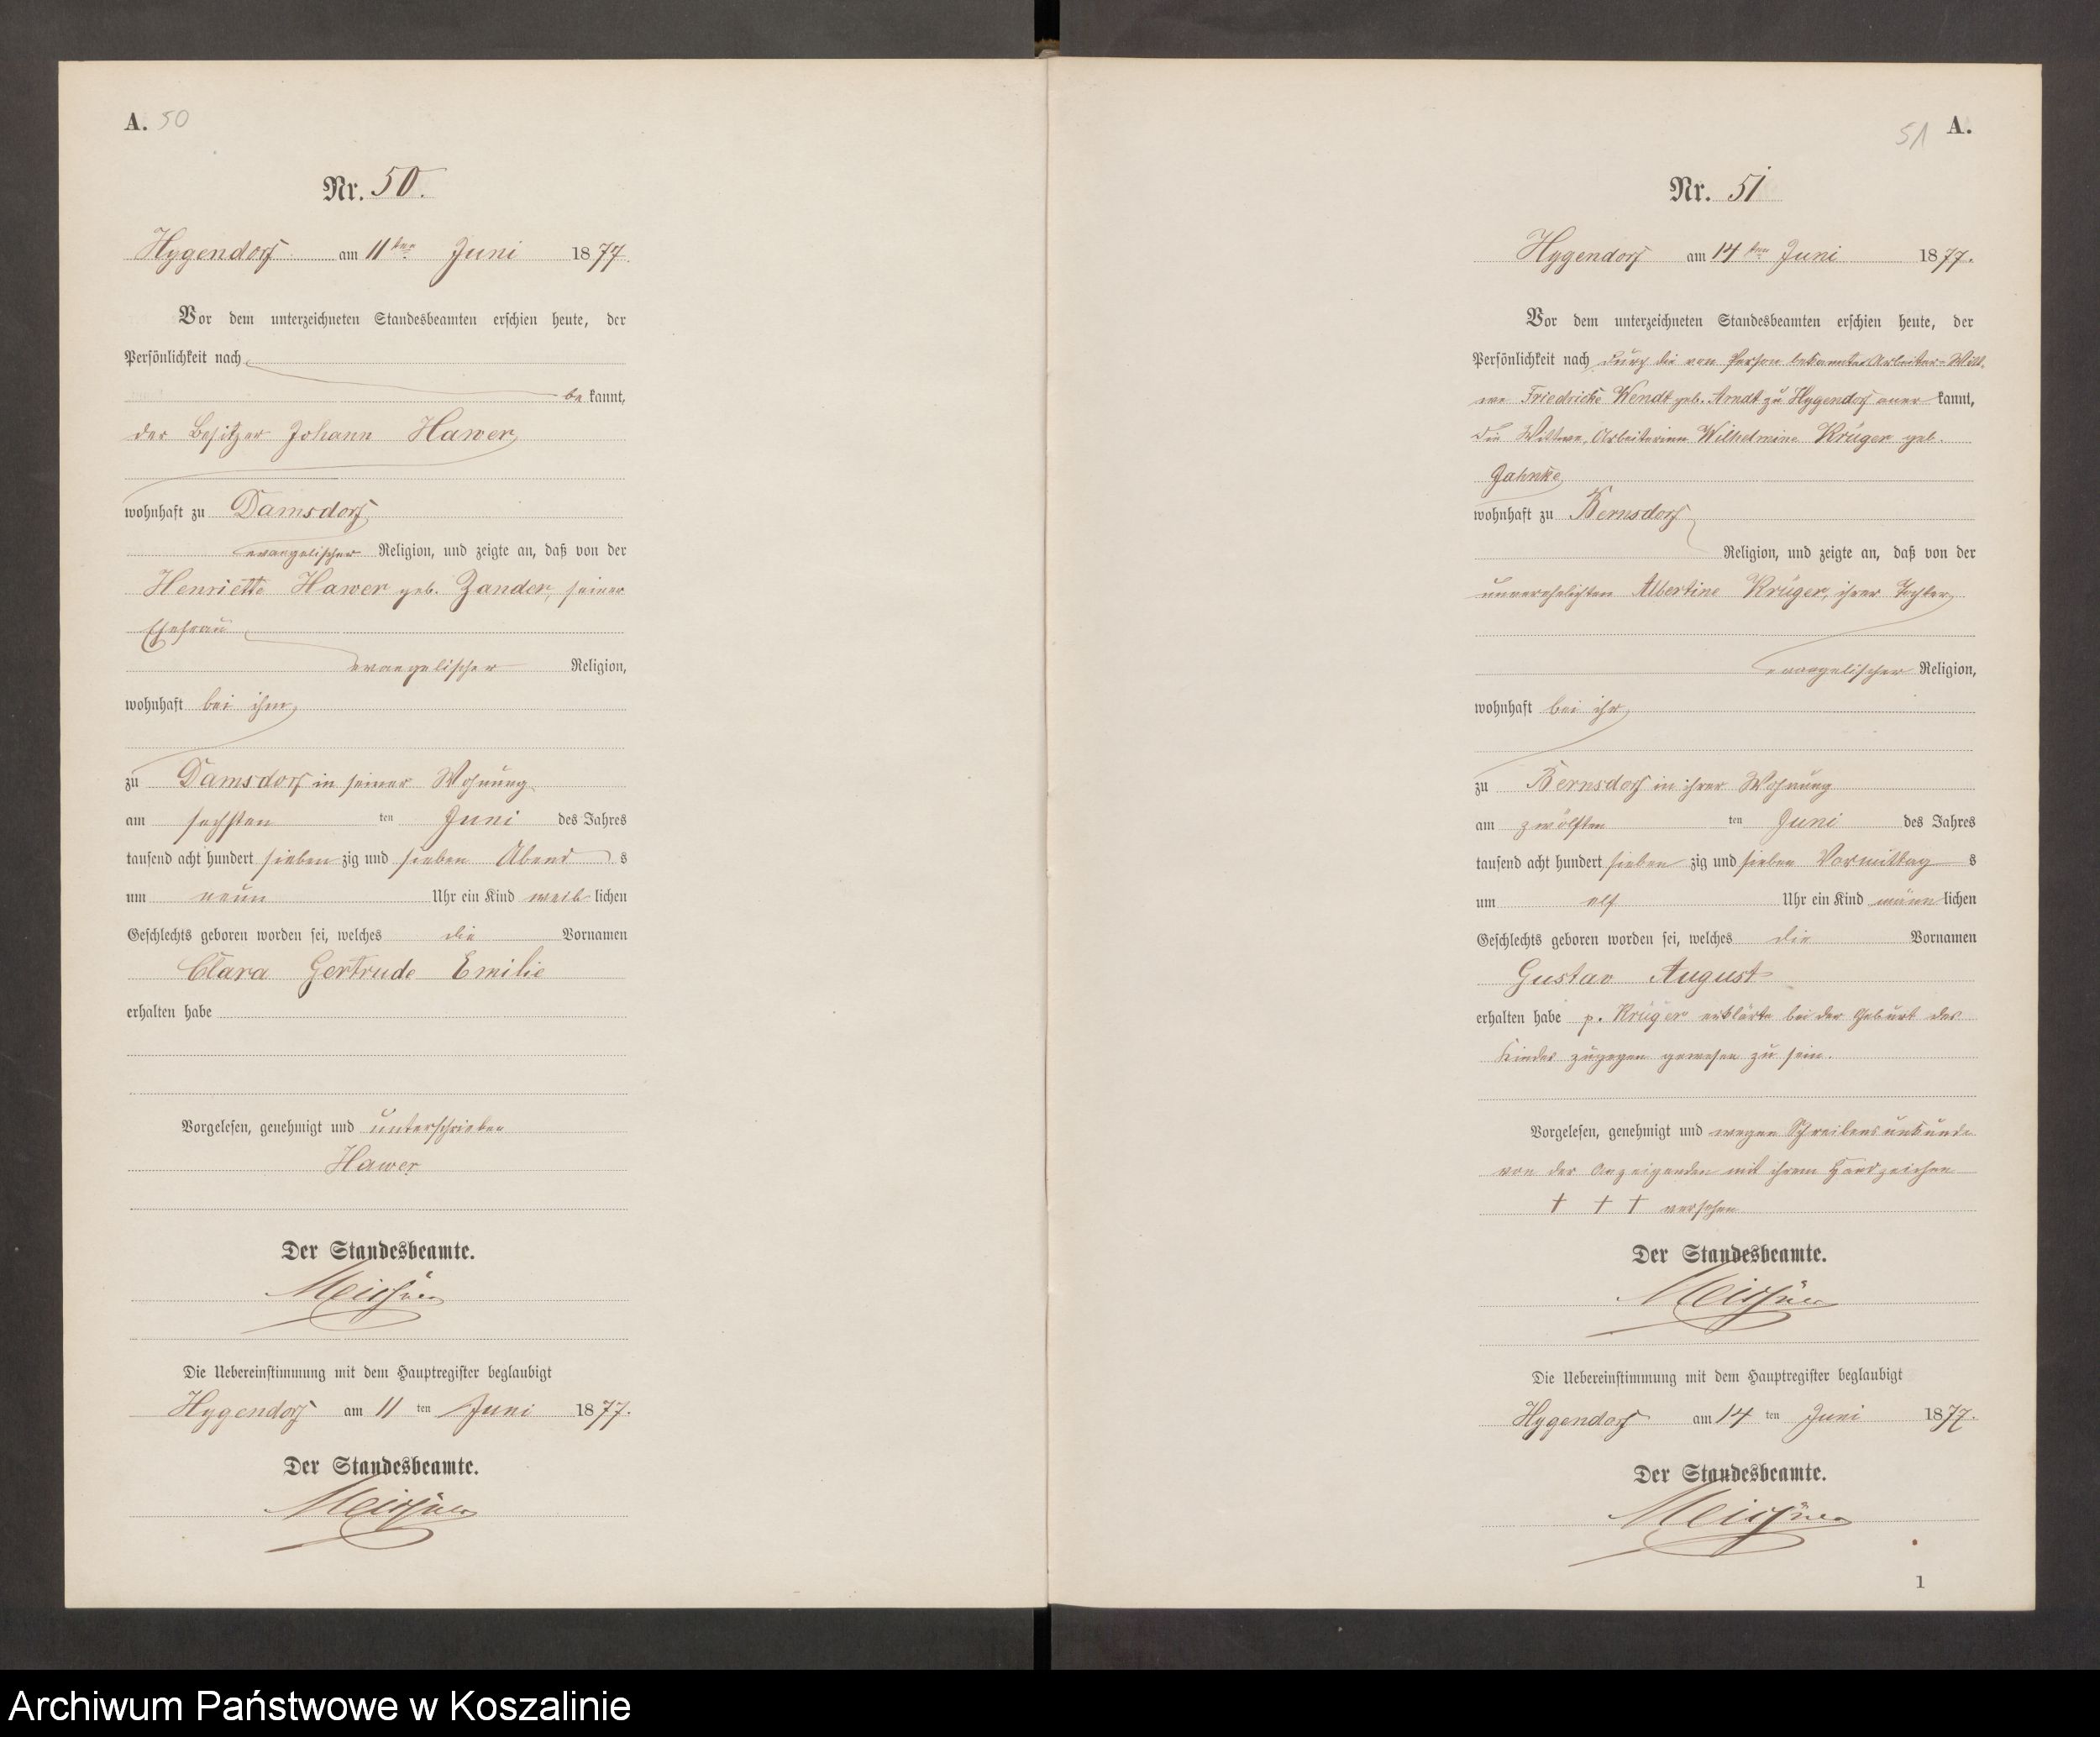 A. 50
Nr. 50.
Hygendorf am 11ten Juni 1877.
Vor dem unterzeichneten Standesbeamten erschien heute, der
Persönlichkeit nach
bekannt,
der Besitzer Johann Hawer
wohnhaft zu Damsdorf
evangelischer Religion, und zeigte an, daß von der
Henriette Hawer geb. Zander, seiner
Ehefrau
evangelischer Religion,
wohnhaft bei ihm,
zu Damsdorf in seiner Wohnung
am sechsten ten Juni des Jahres
tausend acht hundert siebenzig und sieben Abends
um neun Uhr ein Kind weiblichen
Geschlechts geboren worden sei, welches die Vornamen
Clara Gertrude Emilie
erhalten habe
Vorgelesen, genehmigt und unterschrieben
Hawer
Der Standesbeamte.
Die Uebereinstimmung mit dem Hauptregister beglaubigt
Hygendorf am 11 ten Juni 1877.
Der Standesbeamte.
51 A.
Nr. 51
Hygendorf am 14ten Juni 1877.
Vor dem unterzeichneten Standesbeamten erschien heute, der
Persönlichkeit nach durch die von Person bekannte Arbeiter-Witt-
we Friedricke Wendt geb. Arndt zu Hygendorf anerkannt,
die Wittwe, Arbeiterinn Wilhelmine Krüger geb.
Jahnke
wohnhaft zu Bernsdorf
Religion, und zeigte an, daß von der
unverehelichten Albertine Krüger, ihrer Tochter,
evangelischer Religion,
wohnhaft bei ihr,
zu Bernsdorf in ihrer Wohnung
am zwölften ten Juni des Jahres
tausend acht hundert siebenzig und sieben Vormittags
um elf Uhr ein Kind männlichen
Geschlechts geboren worden sei, welches die Vornamen
Gustav August
erhalten habe p. Krüger erklärte bei der Geburt des
Kindes zugegen gewesen zu sein.
Vorgelesen, genehmigt und wegen Schreibensunkunde
von der Anzeigenden mit ihrem Handzeichen
† † † versehen
Der Standesbeamte.
Die Uebereinstimmung mit dem Hauptregister beglaubigt
Hygendorf am 14 ten Juni 1877.
Der Standesbeamte.
1
Archiwum Państwowe w Koszalinie